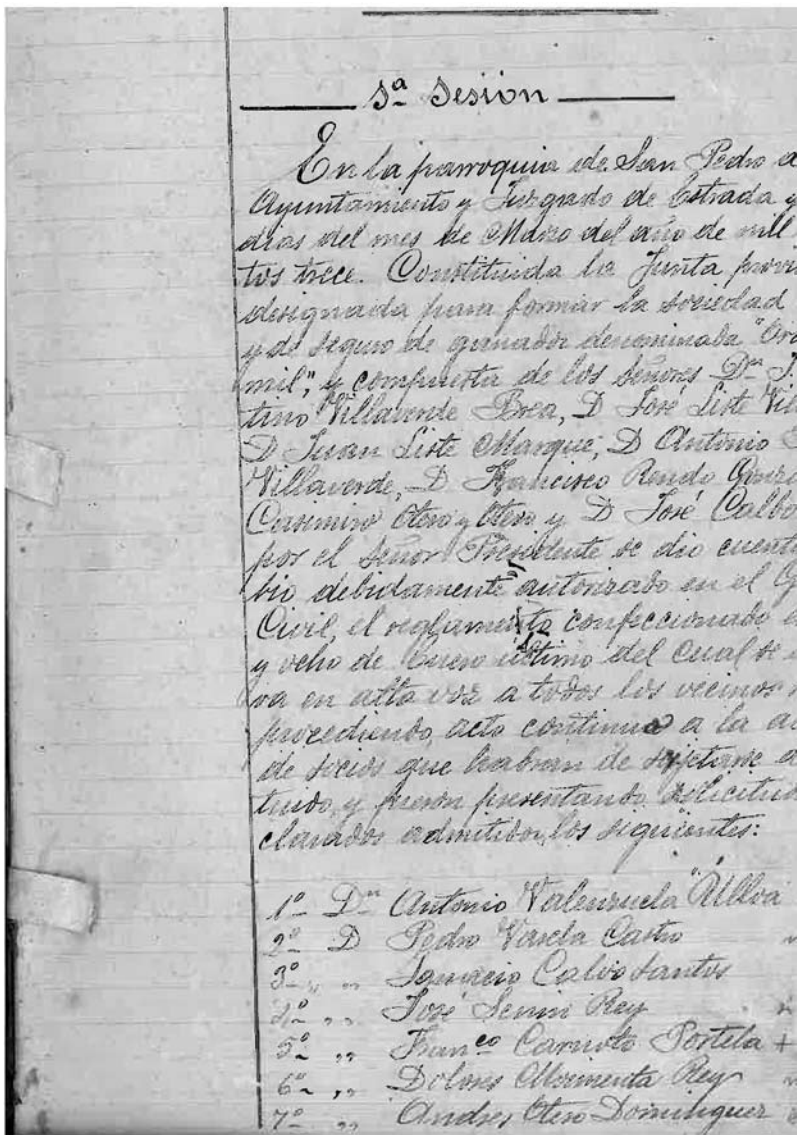 3ª Sesion
En la parroquia de San Pedro
Ayuntamiento y Juzgado de Estrada y
dias del mes de Marzo del año de mil
tos trece. Constituida la Junta
designada para formar la sociedad
y de seguro de ganados denominada
mil", y compuesta de los señores Dn J.
tino Villaverde Brea, D José Liste
D Juan Liste Marque, D Antonio
Villaverde, D Francisco Rendo
Casimiro Otero y Otero y D José Calbo
por el señor Presidente se dio
bio debidamente autorizado en el
Civil, el reglamento confeccionado
y ocho de Enero ultimo del cual se
va en alta voz a todos los vecinos
procediendo, acto continuo a la
de socios que habran de sujetarse a
tuido, y fueron presentando
clarados admitidos, los siguientes:
1º Dn Antonio Valenzuela Ulloa
2º D Pedro Varela Castro "
3º " " Ignacio Calvo Santos
4º " " José Rey "
5º " " Franco Portela +
6º " " Dolores Mormenta Rey "
7º " " Andres Otero Dominguez